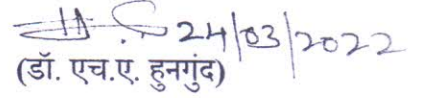 24/03/2022
(डॉ. एच.ए. हुनगुंद)